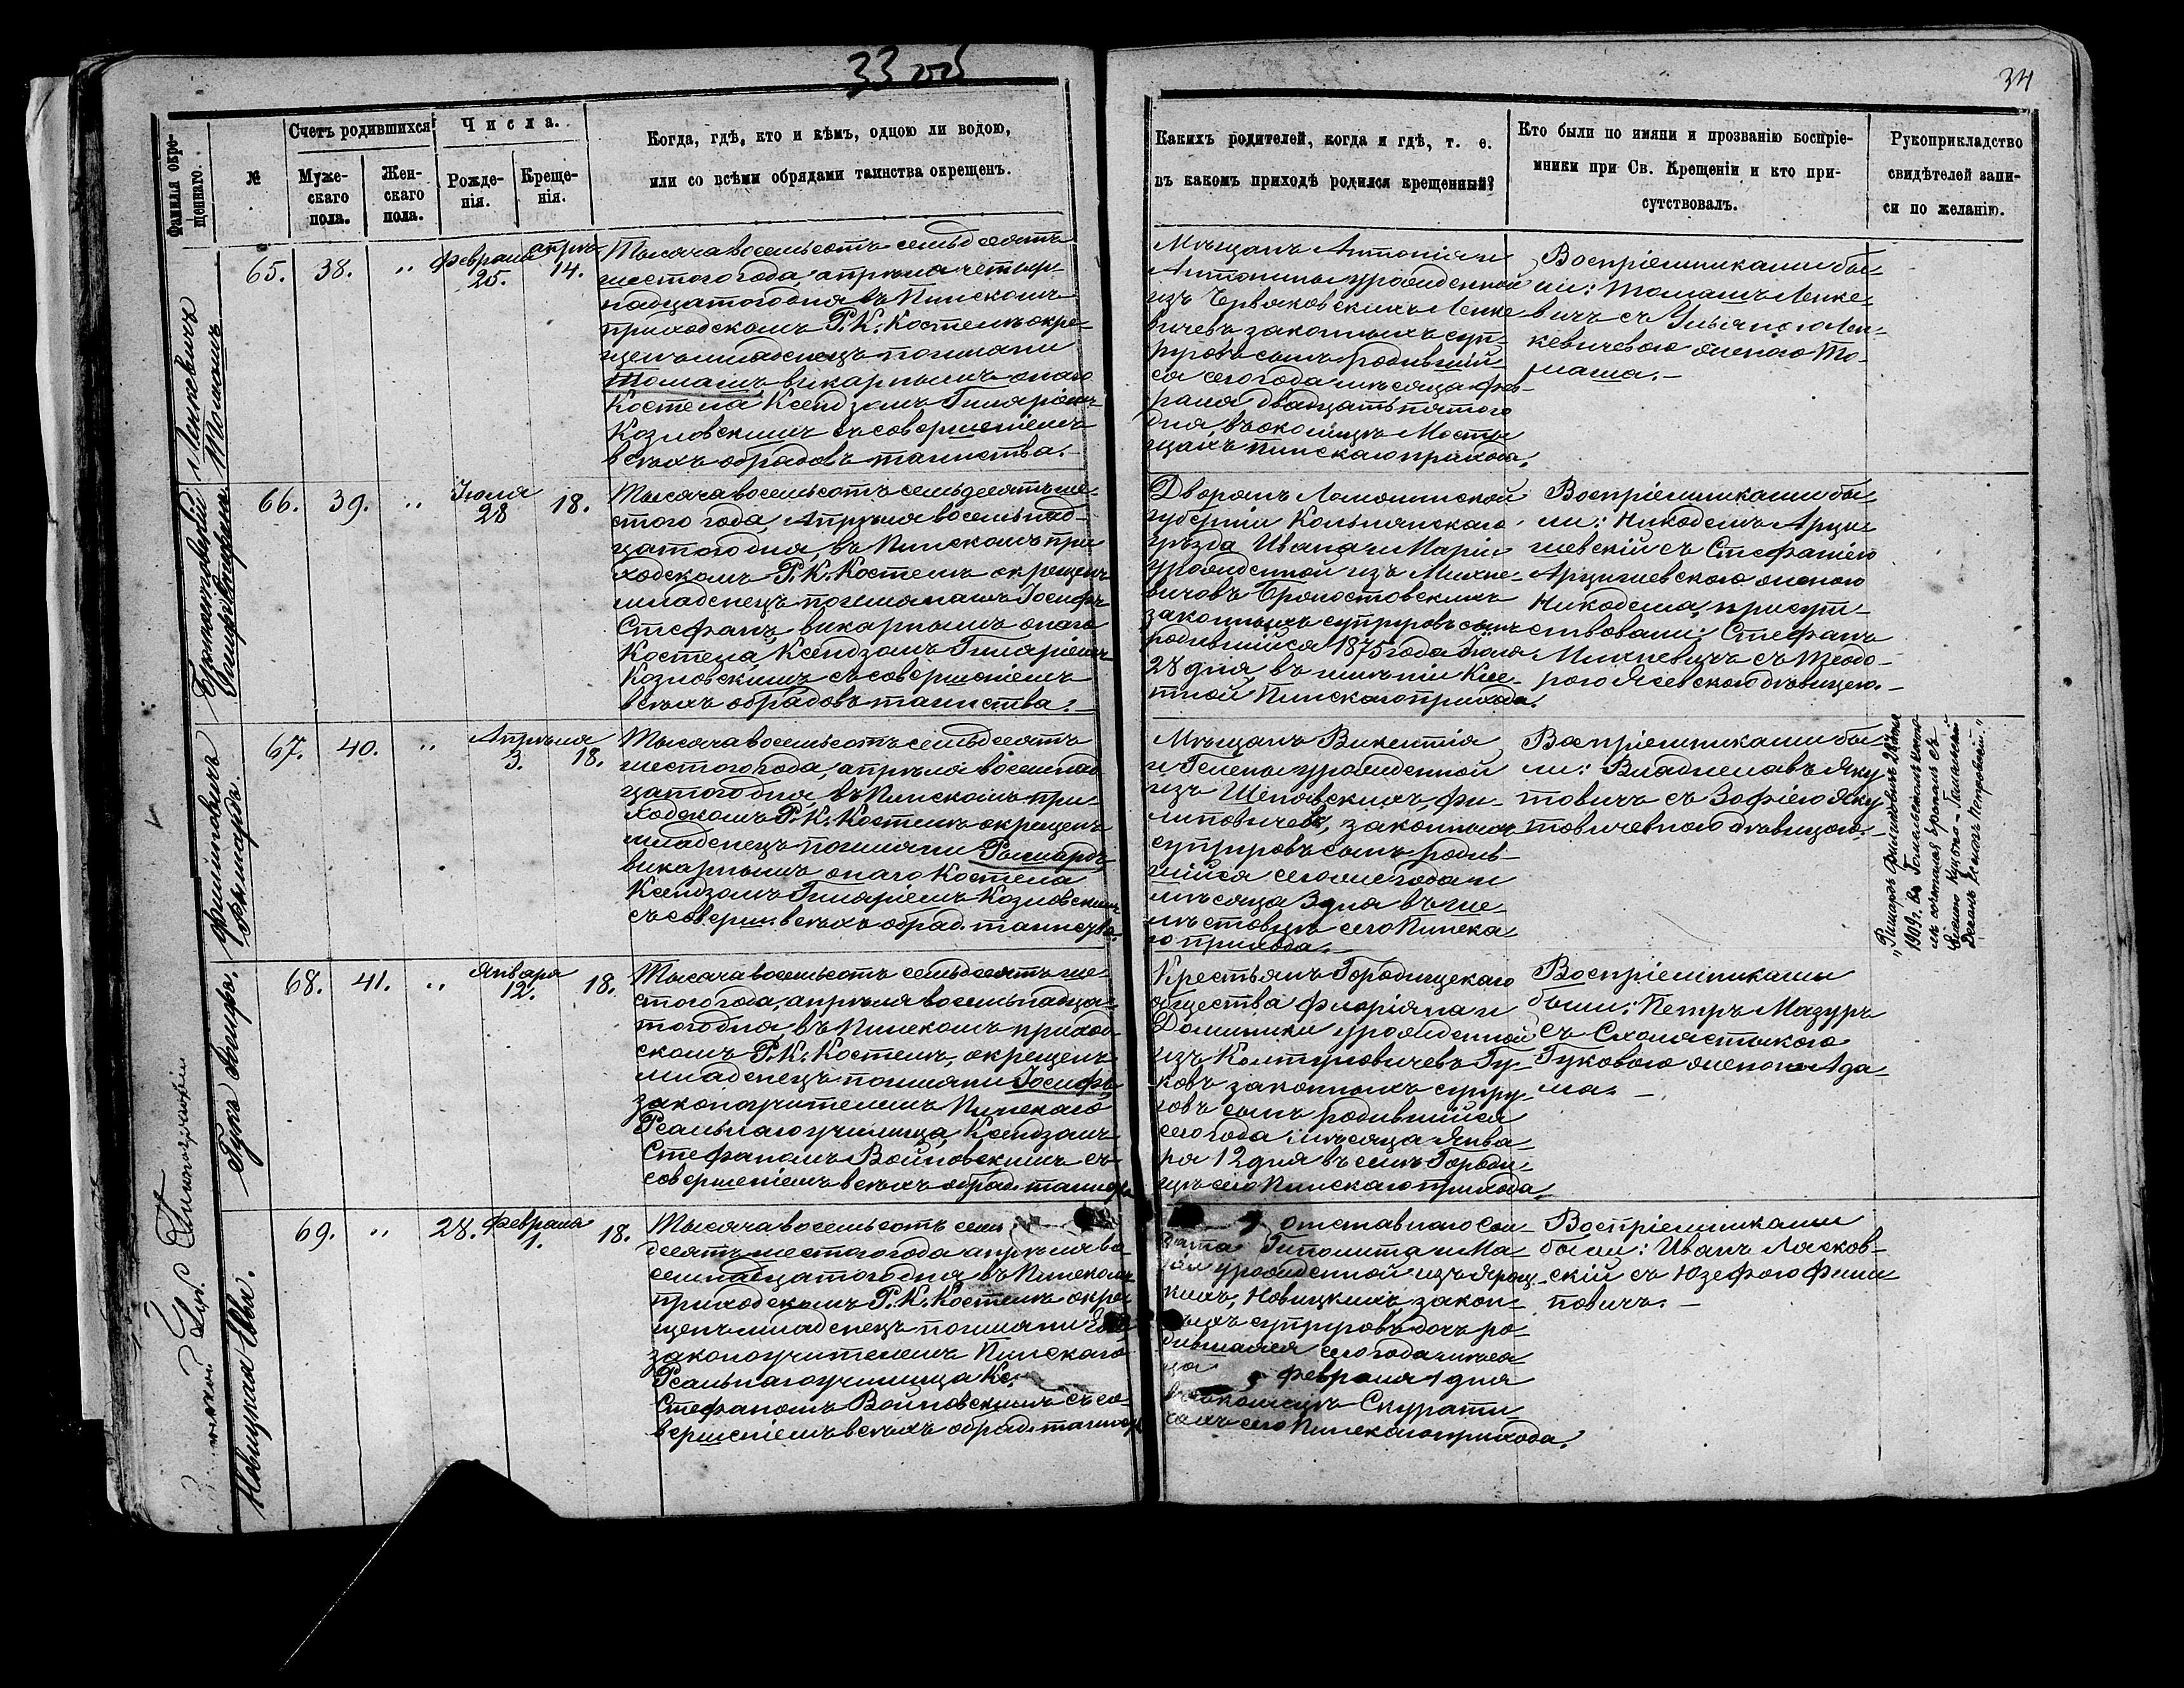 33 об
34
Фамилія окре-
щеннаго.
№
Счетъ родившихся
Муже-
скаго
пола.
Жен-
скаго
пола.
Числа.
Рожде-
нія.
Креще-
нія.
Когда, гдѣ, кто и кѣмъ, одною ли водою,
или со всѣми обрядами таинства окрещенъ.
Какихъ родителей, когда и гдѣ, т. е.
въ какомъ приходѣ родился крещенный?
Кто были по имяни и прозванію воспріе-
мники при Св. Крещеніи и кто при-
сутствовалъ.
Рукоприкладство
свидѣтелей запи-
си по желанію.
Ленкевичъ
Томашъ
65. 38. „ Февраля 25. апрѣ. 14.
Тысяча восемьсотъ семьдесятъ
шестого года, апрѣля четыр-
надцатого дня въ Пинскомъ
приходскомъ Р. К. Костелѣ окре-
щенъ младенецъ по имяни
Томашъ викарнымъ онаго
Костела Ксендзомъ Гиляріемъ
Козловскимъ съ совершеніемъ
всѣхъ обрядовъ таинства.
Мѣщанъ Антонія и
Антонины урожденной
изъ Червяковскихъ Ленке
вичевъ законныхъ суп-
руговъ сынъ родивший-
ся сего года мѣсяца Фев-
раля двадцать пятого
дня, въ околицѣ Мосты
щахъ Пинскаго прихода.
Воспріемниками бы-
ли: Томашъ Ленке-
вичъ съ Ульяною Лен-
кевичевою женою То-
маша.
66. 39. „ Іюля 28 18.
Тысяча восемьсотъ семьдесятъ ше-
стого года, Апрѣля восемнад-
цатого дня въ Пинскомъ при
ходскомъ Р. К. Костелѣ окрещенъ
младенецъ по имянамъ Іосифъ
Стефанъ, викарнымъ онаго
Костела, Ксендзомъ Гиляріемъ
Козловскимъ съ совершеніемъ
всѣхъ обрядовъ таинства.
Дворянъ Ломжинской
губерніи Кольнянскаго
уѣзда Ивана и Маріи
урожденной изъ Михне-
вичовъ Бромостовскихъ
законныхъ супруговъ сынъ
родившійся 1875 года Іюля
28 дня въ имѣніи Кле-
тной Пинскаго прихода.
Воспріемниками бы-
ли: Никодемъ Арци-
шевскій съ Стефаніею
Арцишевскою женою
Никодема, присут-
ствовали: Стефанъ
Михневичъ съ Теодо-
рою Ясевскою дѣвицею.
Филиповичъ
Рышардъ.
67. 40. „ Апрѣля 3. 18.
Тысяча восемьсотъ семьдесятъ
шестого года, апрѣля восемнад
цатого дня, въ Пинскомъ при-
ходскомъ Р. К. Костелѣ окрещенъ
младенецъ по имяни Рышардъ
викарнымъ онаго Костела
Ксендзомъ Гиляріемъ Козловскимъ
съ соверш. всѣхъ обряд. таинства.
Мѣщанъ Викентія
и Гелены урожденной
изъ Шеповскихъ, Фи-
липовичевъ, законныхъ
супруговъ сынъ родив-
шійся сего же года и
мѣсяца 3 дня въ ме-
мѣстовцѣ сего Пинска
го прихода.
Воспріемниками бы-
ли: Владиславъ Яку
товичъ съ Зофіею Яку
товичевною дѣвицею.
„Ришардъ Филиповичъ 28 Мая
1909 г. въ
сочетался бракомъ съ
Гукъ Іосифъ.
68. 41. „ Января 12. 18.
Тысяча восемьсотъ семьдесятъ ше-
стого года, апрѣля восемьнадца-
того дня, въ Пинскомъ приход-
скомъ Р. К. Костелѣ, окрещенъ
младенецъ по имяни Іосифъ
законоучителемъ Пинскаго
Реальнаго училища, Ксендзомъ
Стефаномъ Войновскимъ съ
совершеніемъ всѣхъ обряд. таинства
Крестьянъ Городищскаго
общества Флоріяна и
Доминики урожденной
изъ Колтуновичевъ Гу-
ковъ законныхъ супру-
говъ сынъ родившійся
сего года мѣсяца Янва-
ря 12 дня въ селѣ Городи-
щѣ сего Пинскаго прихода.
Воспріемниками
были: Петръ Мазуръ
съ Схоластыкою
Гуковою женою Ада-
ма.
Новицкая Ева.
69. „ 28. Февраля 1. 18.
Тысяча восемьсотъ семь
десятъ шестого года апрѣля во
семнадцатого дня въ Пинскомъ
приходскомъ Р. К. Костелѣ окре-
щенъ младенецъ по имяни Ева,
законоучителемъ Пинскаго
Реальнаго училища Кс.
Стефаномъ Войновскимъ съ со-
вершеніемъ всѣхъ обряд. таинства
отставнаго сол-
дата Гиполита и Ма-
ріи урожденной изъ Ярош-
кихъ, Новицкихъ закон-
ныхъ супруговъ дочъ ро-
дившаяся сего года мѣся
ца Февраля 1 дня
въ околицѣ Скурати-
хахъ сего Пинскаго прихода.
Воспріемниками
были: Иванъ Лясков-
скій съ Юзефою Фили
повичъ.